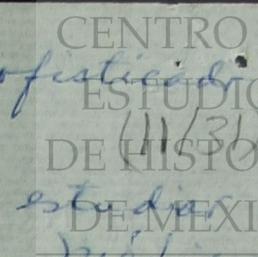 CENTRO
ofisticado
ESTUDIO
(11/31)
DE HISTO
estudiar
DE MEXI